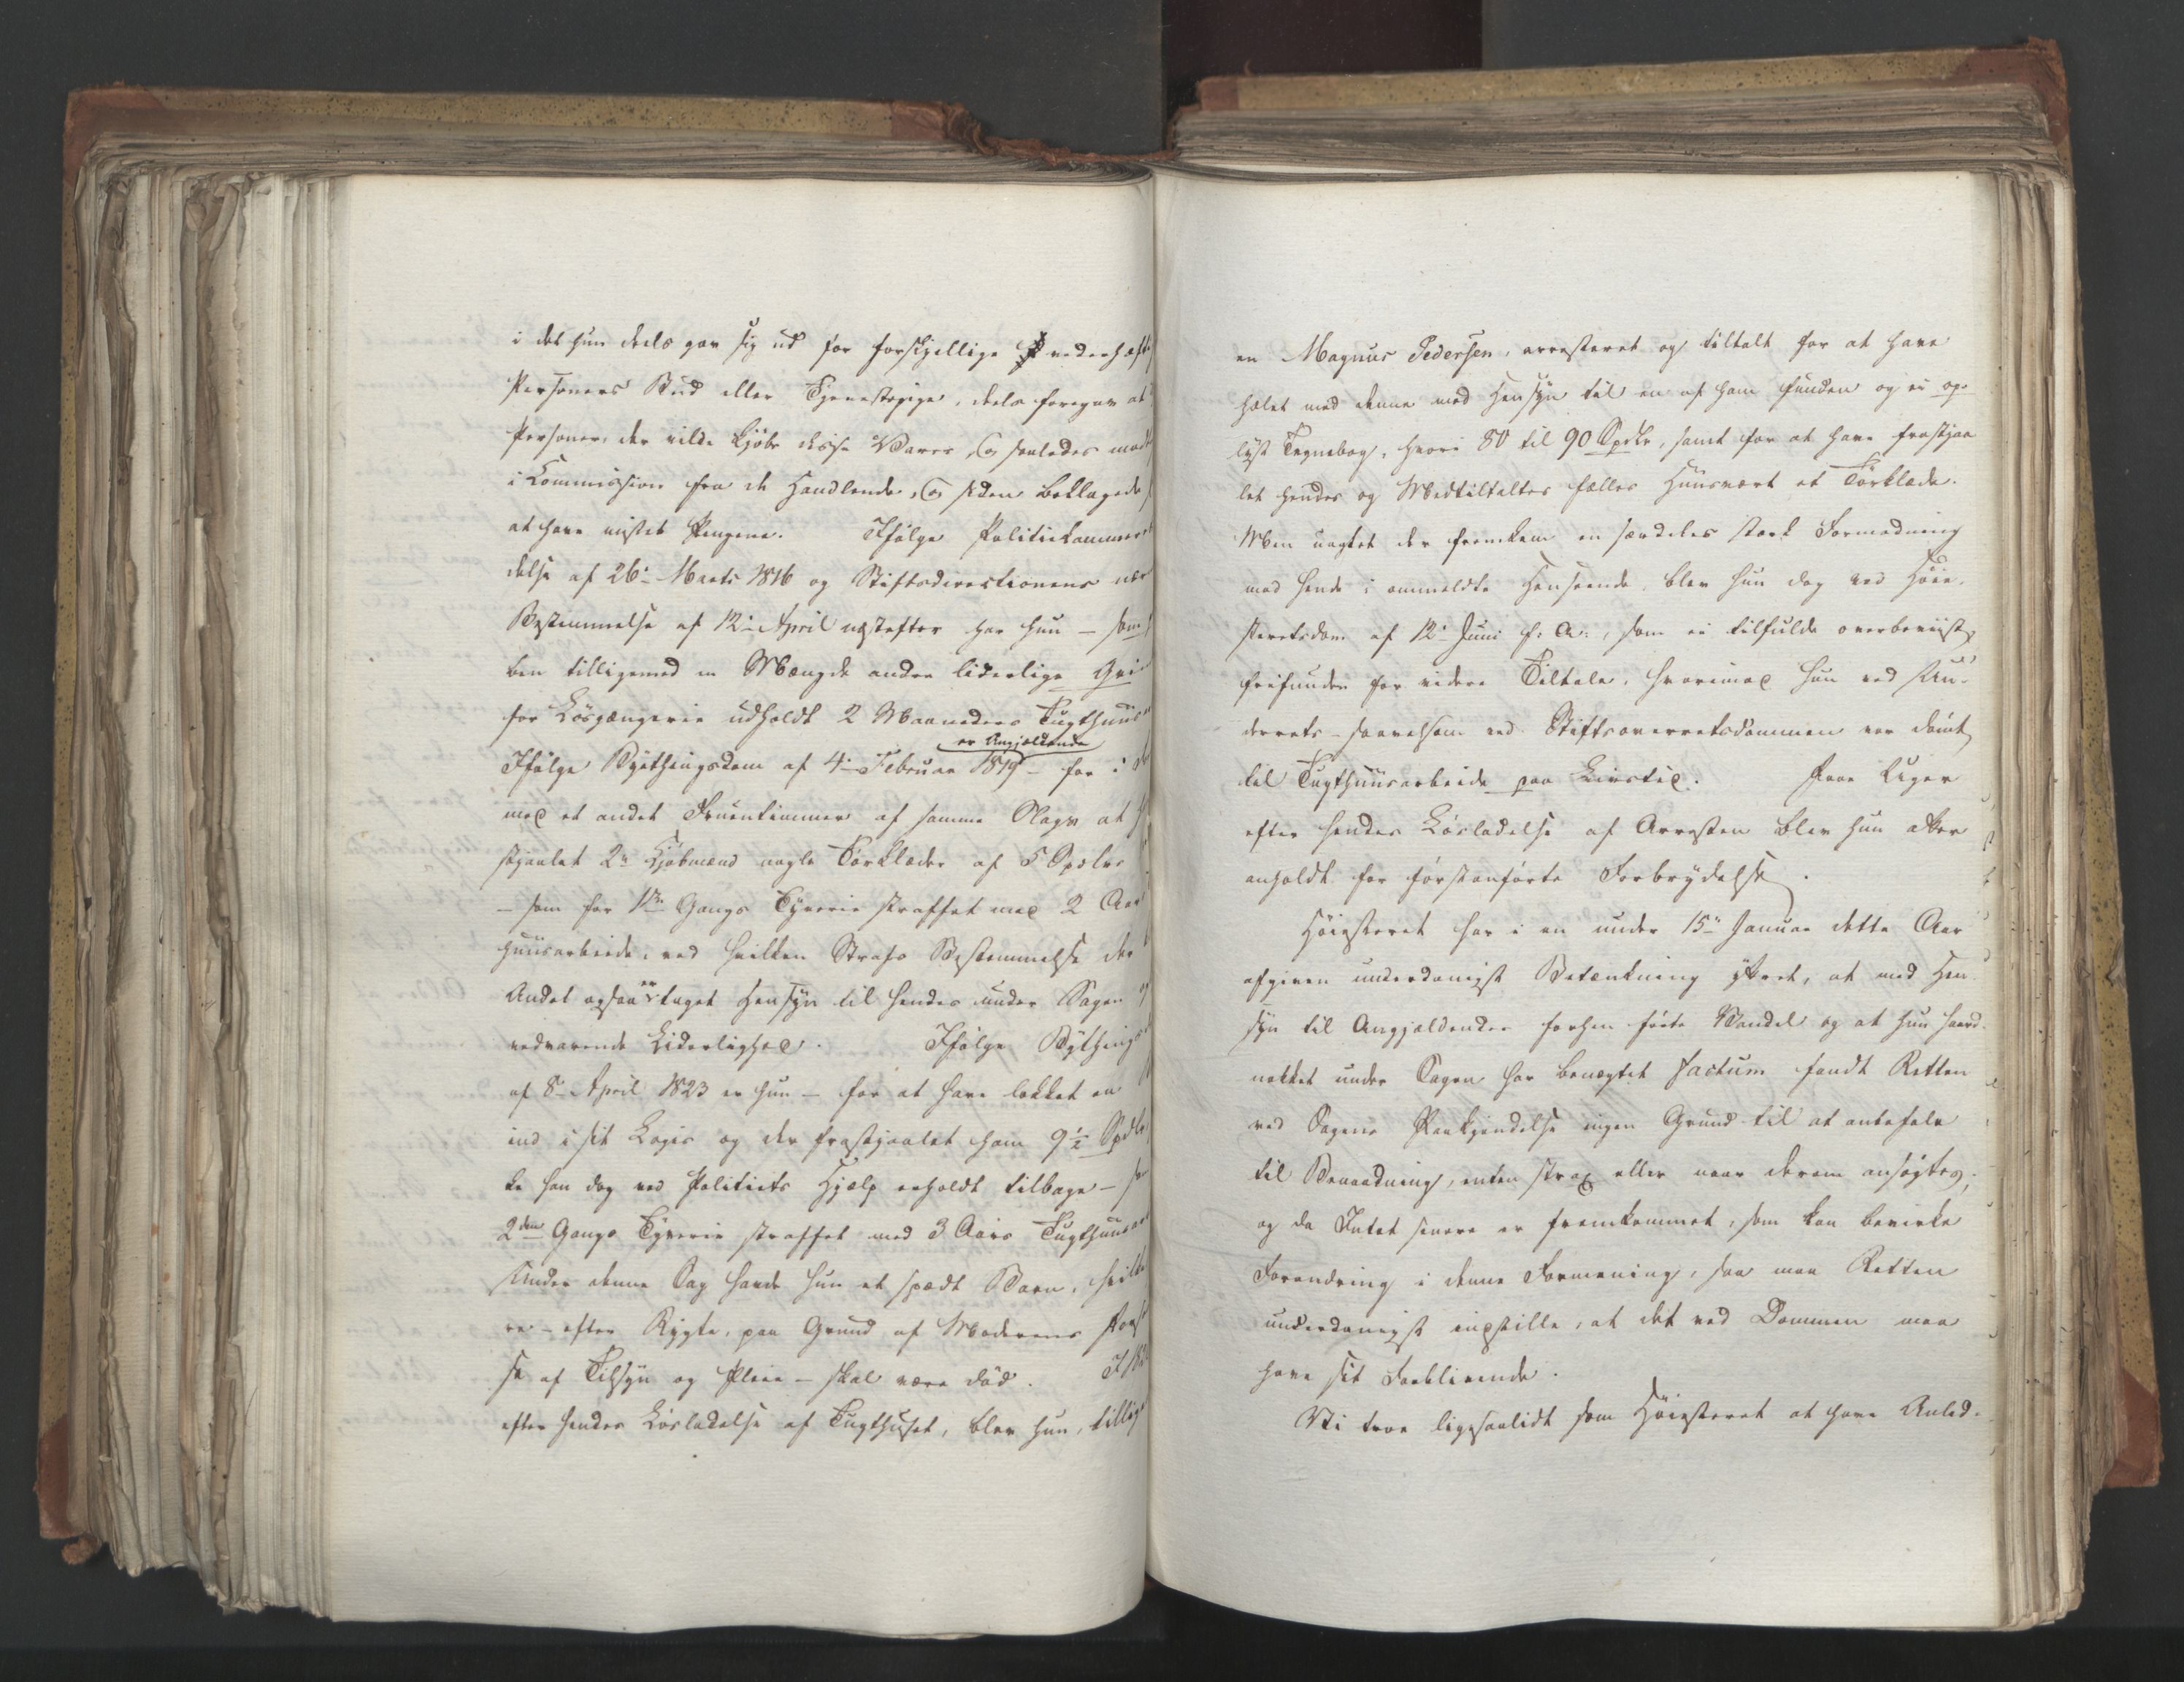 i det hun deels gav sig ud for forskjellige vederhæft
Personers Bud eller Tjenestepige, deels foregav at
Personer, der vilde kjøbe disse Varer, og saaledes mod
i Commission fra de Handlende, og siden beklagede
at have mistet Pengene. Ifølge Politiekammer
delse af 26: Marts 1816 og Stiftsdirectionens
Bestemmelse af 12: April næstefter har hun – sam
ben tilligemed en Mængde andre liderlige Qvi
for Løsgængerie udholdt 2 Maaneders Tugthuus
er Angjældende
Ifølge Byethingsdom af 4: Februar 1819 – for i
med et andet Fruentimmer af samme Slags at
stjaalet 2: Kjøbmænd nogle Tørklæder af 5 Spdlrs
– som for 1ste Gangs Tyverie straffet med 2 Aar
huusarbeide, ved hvilken Strafs Bestemmelse der
Andet ogsaa er taget Hensyn til hendes under Sagen
vedvarende Liderlighed. Ifølge Bythings
af 8: April 1823 er hun – for at have lokket en
ind i sit Logis og der frastjaalet ham 9½ Spdlr
ke han dog ved Politiets Hjælp erholdt tilbage –
2den Gangs Tyverie straffet med 3 Aars Tugthuus
Under denne Sag havde hun et spædt Barn, hvilke
re – efter Rygte, paa Grund af Moderens
se af Tilsyn og Pleie – skal være død. I 182
efter hendes Løsladelse af Tugthuset, blev hun, tillige
en Magnus Pedersen, arresteret og tiltalt for at have
hælet med denne med Hensyn til en af ham funden og ei op-
lyst Tegnebog, hvori 80 til 90 Spdlr, samt for at have frastjaa
let hendes og Medtiltaltes fælles Huusvært et Tørklæde.
Men uagtet der fremkom en særdeles stærk Formodning
mod hende i ommeldte Henseende, blev hun dog ved Høie-
steretsdom af 12: Juni f: A:, som ei tilfulde overbeviist,
frifunden for videre Tiltale, hvorimod hun ved Un-
derrets- saavelsom ved Stiftsoverretsdommen var dømt
til Tugthuusarbeide paa Livstid. Faae Uger
efter hendes Løsladelse af Arresten blev hun atter
anholdt for førstanførte Forbrydelse.
Høiesteret har i en under 15: Januar dette Aar
afgiven underdanigst Betænkning yttret, at med Hen-
syn til Angjældendes forhen førte Vandel og at hun haard-
nakket under Sagen har benægtet factum fandt Retten
ved Sagens Paakjendelse ingen Grund til at anbefale
til Benaadning, enten strax eller naar derom ansøgtes;
og da Intet senere er fremkommet, som kan bevirke
Forandring i denne Formening, saa maa Retten
underdanigst indstille, at det ved Dommen maa
have sit Forblivende.
Vi troe ligesaalidt som Høiesteret at have Anled-